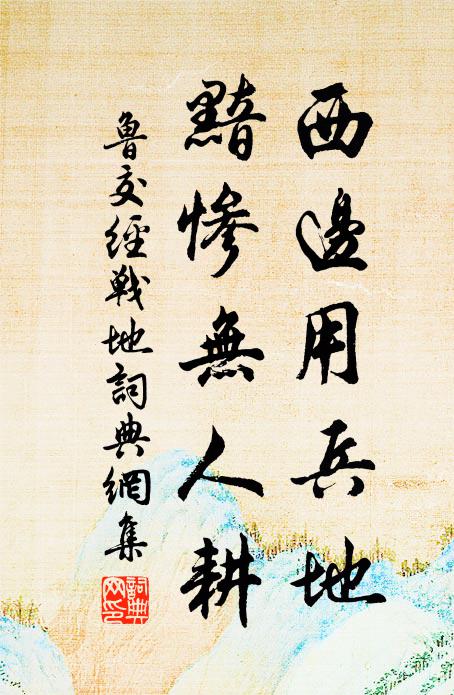 西邊用兵地
黯慘無人耕
魯交經戰地詞典網集
詞典
网印